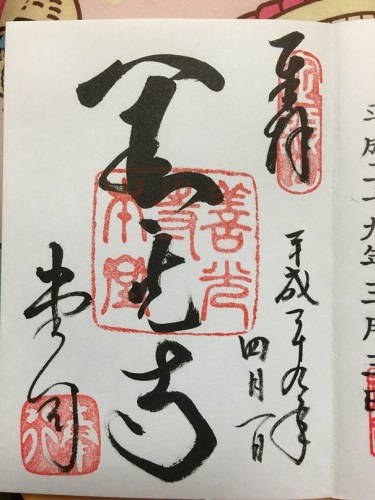 平成二十九年三月
奉拝
平成二十九年
四月一日
善光寺
善光寺本堂
堂司